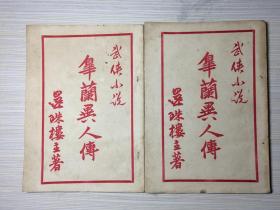 武俠小說
臯蘭異人傳
還珠樓主著
武俠小說
臯蘭異人傳
還珠樓主著